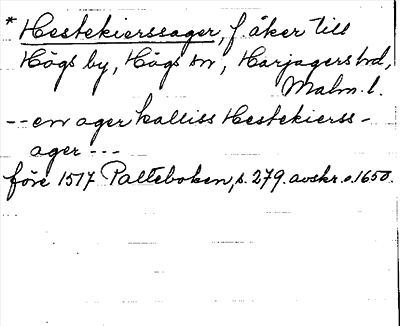 * Hestekierssager, f. åker till
Högs by, Högs sn, Harjagers hd,
Malm. l.
-- en ager kalliss Hestekierss-
ager ---
före 1517 Palteboken, s. 279. avskr. o. 1650.